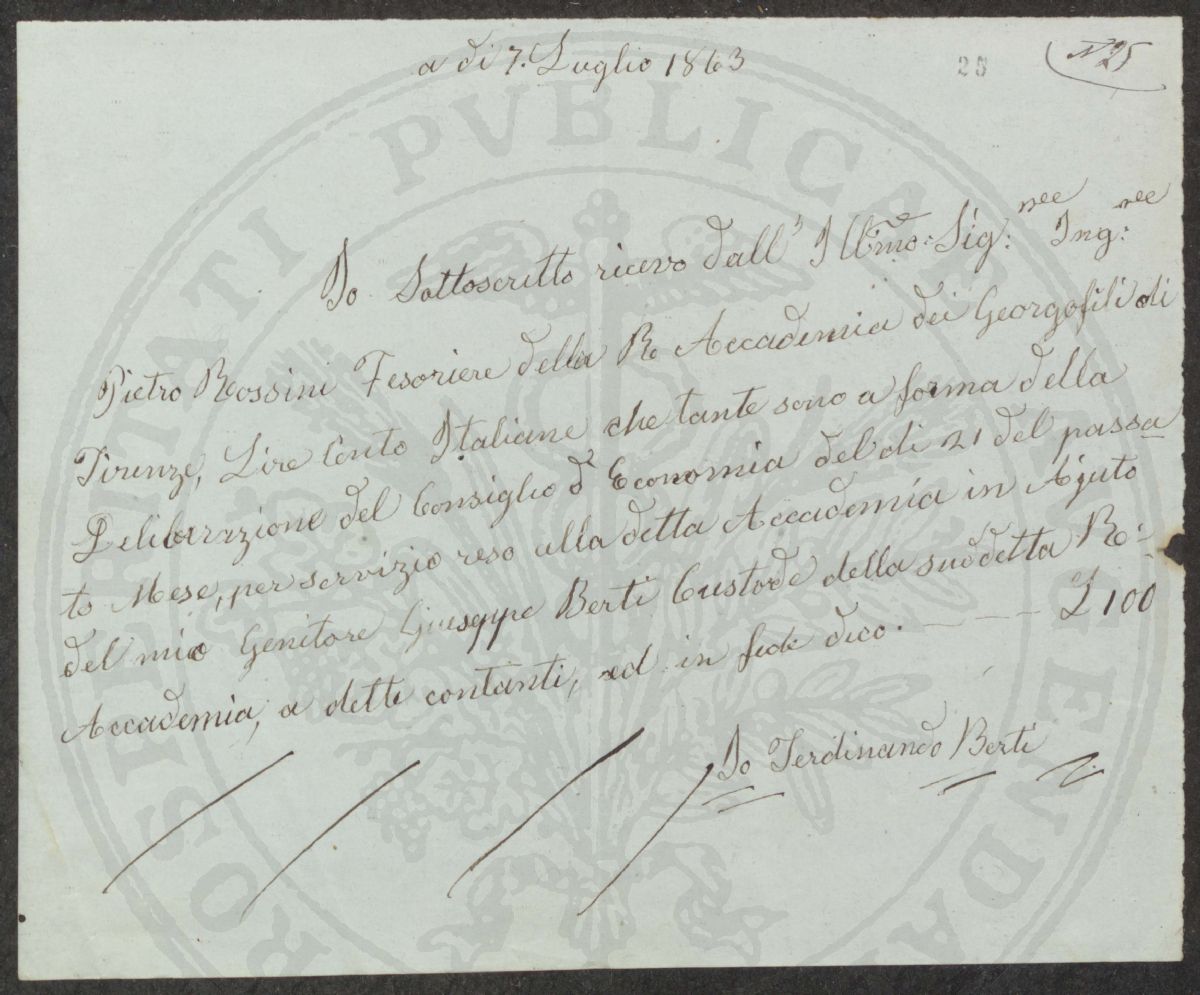 a di 7. Luglio 1863
25
N 25
Io Sottoscritto ricevo dall' Illmo: Sig:re Ing:re
Pietro Rossini Tesoriere della R Accademia dei Georgofili di
Firenze, Lire Cento Italiane che tante sono a forma della
Deliberazione del Consiglio d' Economia del di 21 del passa
to Mese, per servizio reso alla detta Accademia in Ajuto
del mio Genitore Giuseppe Berti Custode della suddetta R:
Accademia, a dette contanti, ed in fede dico. — — — £ 100
Io Ferdinando Berti
PROSPERITATI PVBLICAE AVGENDAE